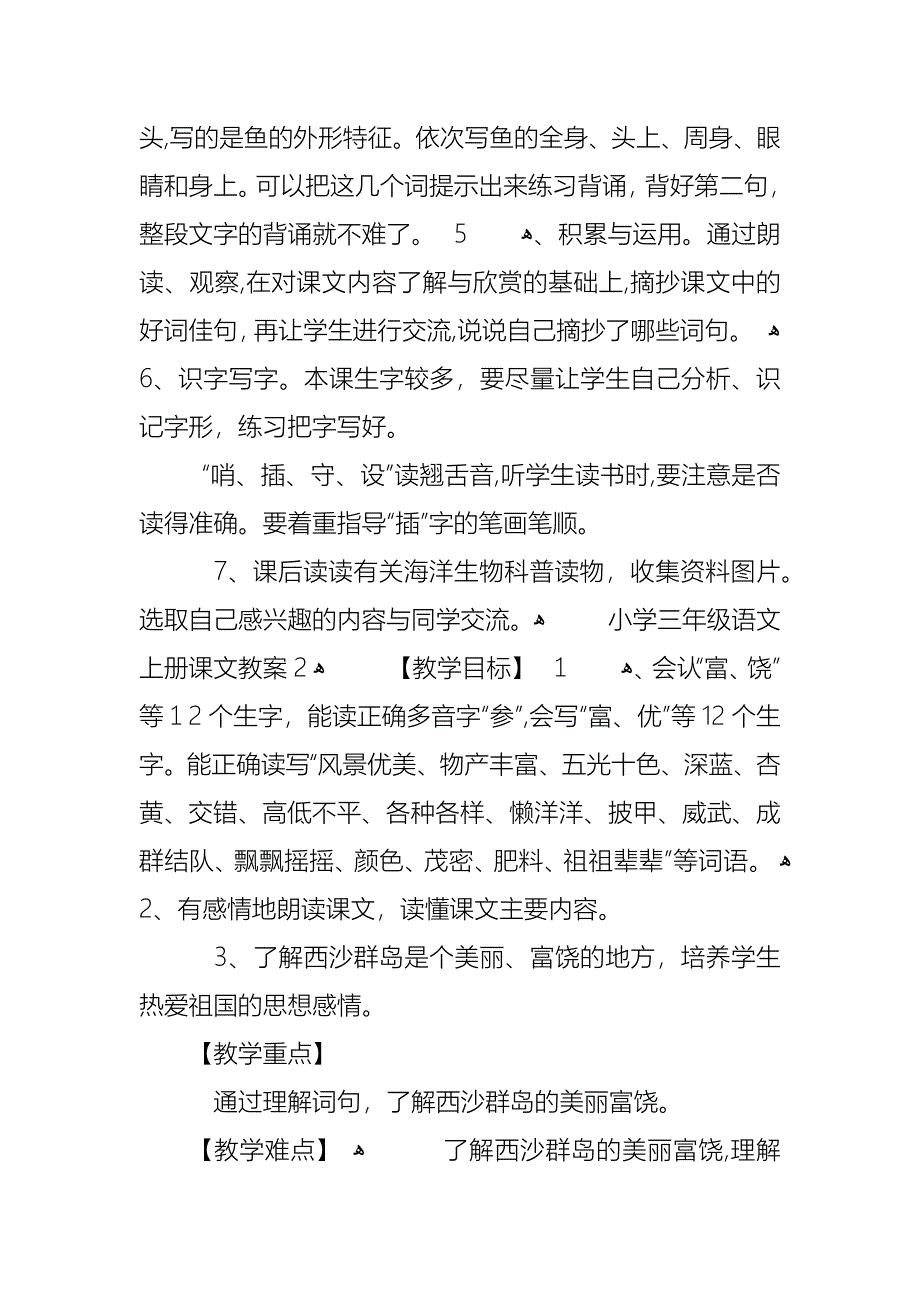 头,写的是鱼的外形特征。依次写鱼的全身、头上、周身、眼
睛和身上。可以把这几个词提示出来练习背诵，背好第二句，
整段文字的背诵就不难了。 5 ﻫ、积累与运用。通过朗
读、观察,在对课文内容了解与欣赏的基础上,摘抄课文中的
好词佳句，再让学生进行交流,说说自己摘抄了哪些词句。 ﻫ
6、识字写字。本课生字较多，要尽量让学生自己分析、识
记字形，练习把字写好。
“哨、插、守、设”读翘舌音,听学生读书时,要注意是否
读得准确。要着重指导“插”字的笔画笔顺。
7、课后读读有关海洋生物科普读物，收集资料图片。
选取自己感兴趣的内容与同学交流。ﻫ 小学三年级语文
上册课文教案2ﻫ 【教学目标】 1 ﻫ、会认“富、饶”
等12个生字，能读正确多音字“参”,会写“富、优”等12个生
字。能正确读写“风景优美、物产丰富、五光十色、深蓝、杏
黄、交错、高低不平、各种各样、懒洋洋、披甲、威武、成
群结队、飘飘摇摇、颜色、茂密、肥料、祖祖辈辈”等词语。 ﻫ
2、有感情地朗读课文，读懂课文主要内容。
3、了解西沙群岛是个美丽、富饶的地方，培养学生
热爱祖国的思想感情。
【教学重点】
通过理解词句，了解西沙群岛的美丽富饶。
【教学难点】 ﻫ 了解西沙群岛的美丽富饶,理解